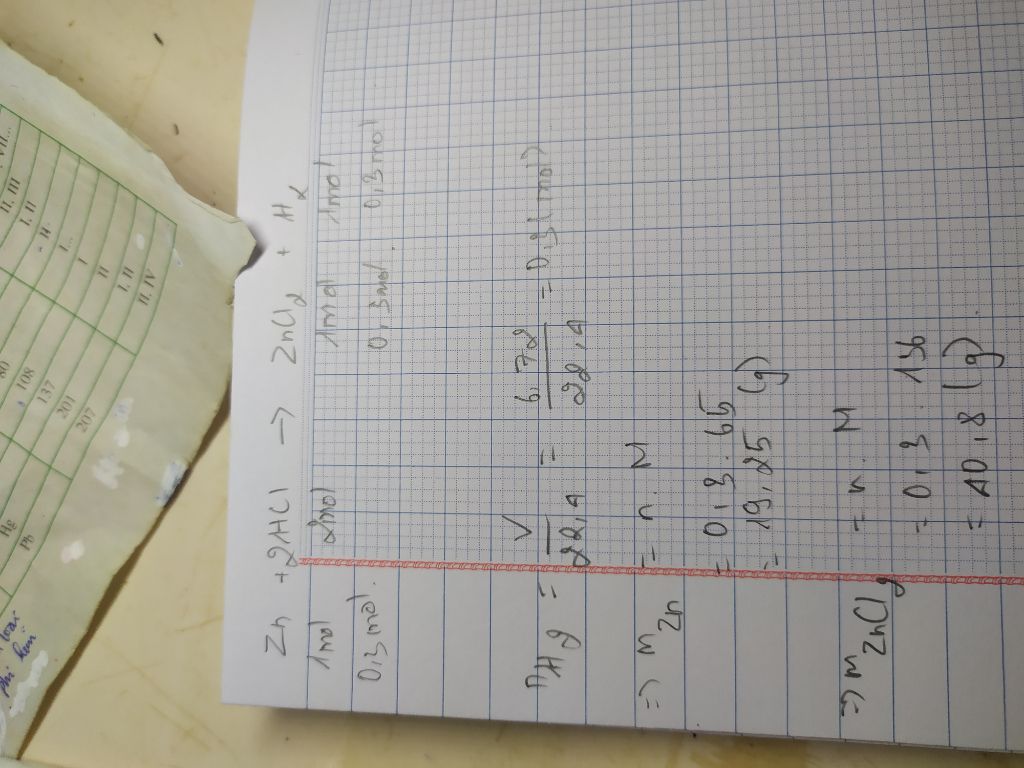 Zn + 2HCl → ZnCl2 + H2
1mol 2mol 1mol 1mol
0,3mol 0,3mol 0,3mol
nH2 = V/22,4 = 6,72/22,4 = 0,3(mol)
=> mZn = n. M
= 0,3. 65
= 19,25 (g)
=> mZnCl2 = n. M
= 0,3. 136
= 40,8 (g)
VIII...
II, III
I, II
80
108
137
201
207
I...
I
II
I, II
II, IV
Hg
Pb
loại
phi kim